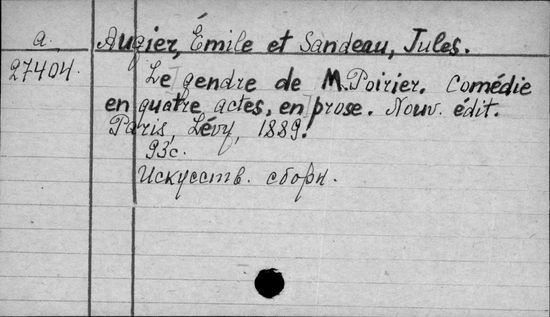 a. Augier, Émile et Sandeau, Jules.
27404. Le gendre de M. Poirier. Comédie
en quatre actes, en prose. Nouv. édit.
Paris, Lévy, 1889.
93с.
Искусств. сборн.